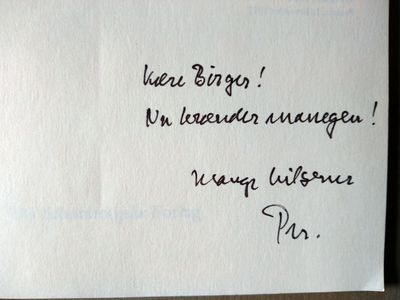 Kære Birger!
Nu brænder manegen!
Mange hilsener
Per.